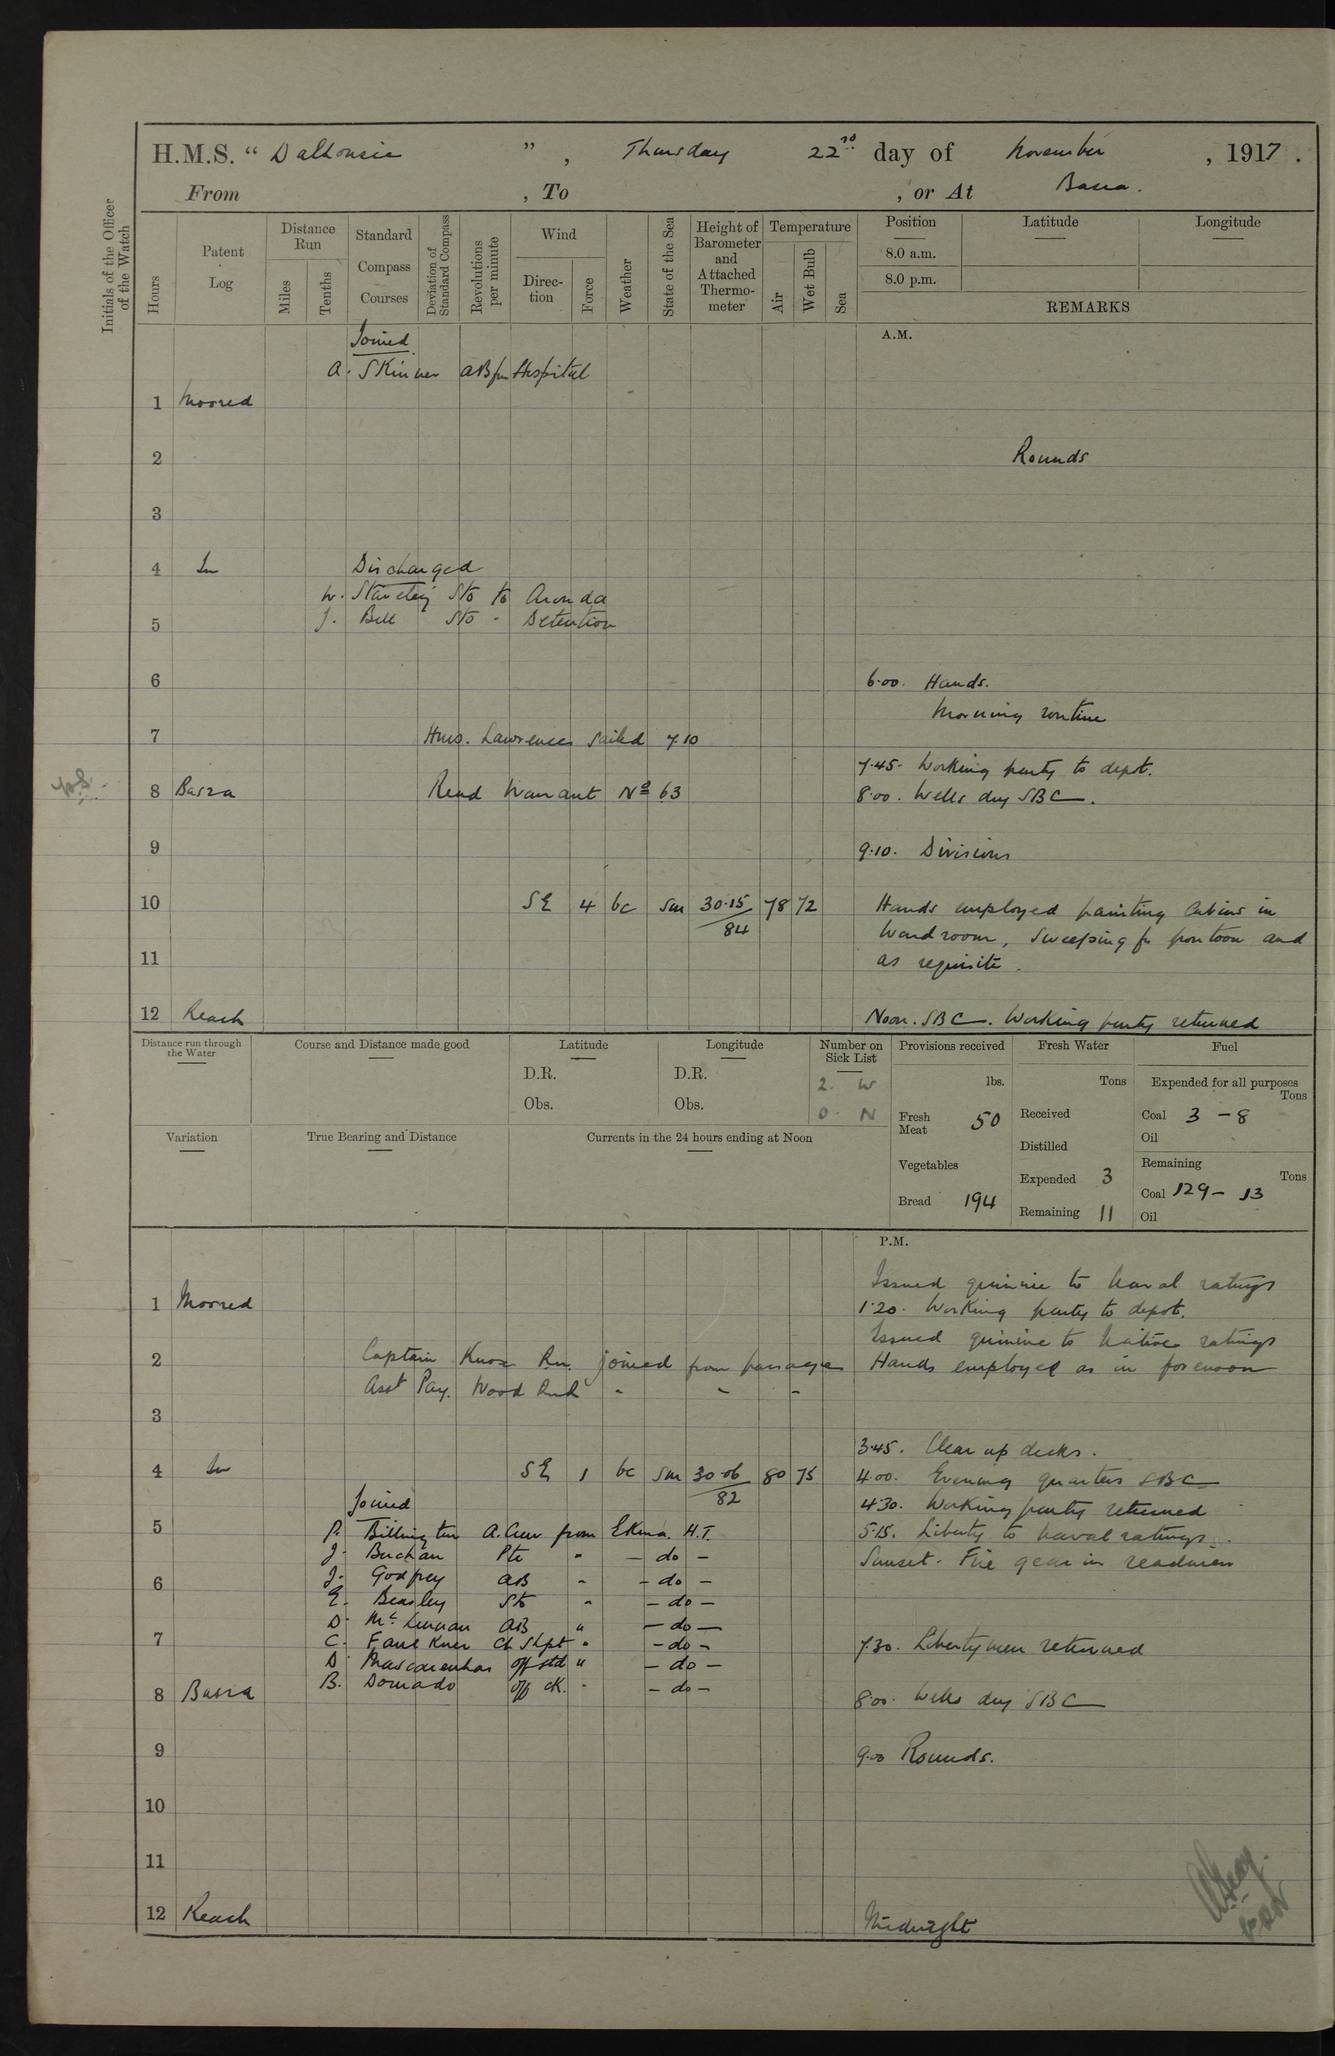 H.M.S. “ Dalhousie ” , Thursday 22nd day of November , 1917 .
From , To , or At Basra.
Initials of the Officer of the Watch
Hours
Patent Log
Distance Run
Miles
Tenths
Standard Compass Courses
Deviation of Standard Compass
Revolutions per minute
Wind
Direc-tion
Force
Weather
State of the Sea
Height of Barometer and Attached Thermo-meter
Temperature
Air
Wet Bulb
Sea
Position Latitude Longitude
8.0 a.m.
8.0 p.m.
REMARKS
A.M.
Joined
A. Skinner AB fm Hospital
1 Moored
2 Rounds
3
4 In Discharged
W. Staveley Sto to
J. Bell Sto - Detention
5
6 6.00. Hands.
Morning routine
7 HMS. Lawrence sailed 7.10
7.45. Working party to depot.
8 Basra Read Warrant No 63 8.00. Wells dry SBC.
9 9.10. Divisions
10 SE 4 bc Sm 30.15 78 72 Hands employed painting Cabins in
84 Wardroom, Sweeping fr pontoon and
11 as requisite.
12 Reach Noon. SBC. Working party returned
Distance run through the Water
Course and Distance made good
Latitude
D.R.
Obs.
Longitude
D.R.
Obs.
Number on Sick List
2. W
0. N
Provisions received
lbs.
Fresh Meat 50
Vegetables
Bread 194
Fresh Water
Tons
Received
Distilled
Expended 3
Remaining 11
Fuel
Expended for all purposes
Tons
Coal 3 - 8
Oil
Remaining
Tons
Coal 129 - 13
Oil
Variation
True Bearing and Distance
Currents in the 24 hours ending at Noon
P.M.
Issued quinine to Naval ratings
1 Moored 1.20. Working party to depot.
Issued quinine to Native ratings
2 Captain Knox Rn. joined from passage Hands employed as in forenoon
Asst Pay. Wood RnR " " "
3
3.45. Clear up decks.
4 In SE 1 bc Sm 30.06 80 75 4.00. Evening quarters SBC
82
Joined 4.30. Working party returned
5 P. Billington A. Crew from Ekma. H.T. 5.15. Liberty to Naval ratings.
J. Buchan Pte " - do - Sunset. Fire gear in readiness
J. Godfrey AB " - do -
6 E. Beasley Sto " - do -
D. McLennan AB " - do -
7 C. Faulkner Ch Shpt " - do - 7.30. Libertymen returned
D Mascarenhas off std " - do -
B. Dourado off ck. " - do -
8 Basra 8.00. Wells dry SBC
9 9.00 Rounds.
10
11
12 Reach Midnight